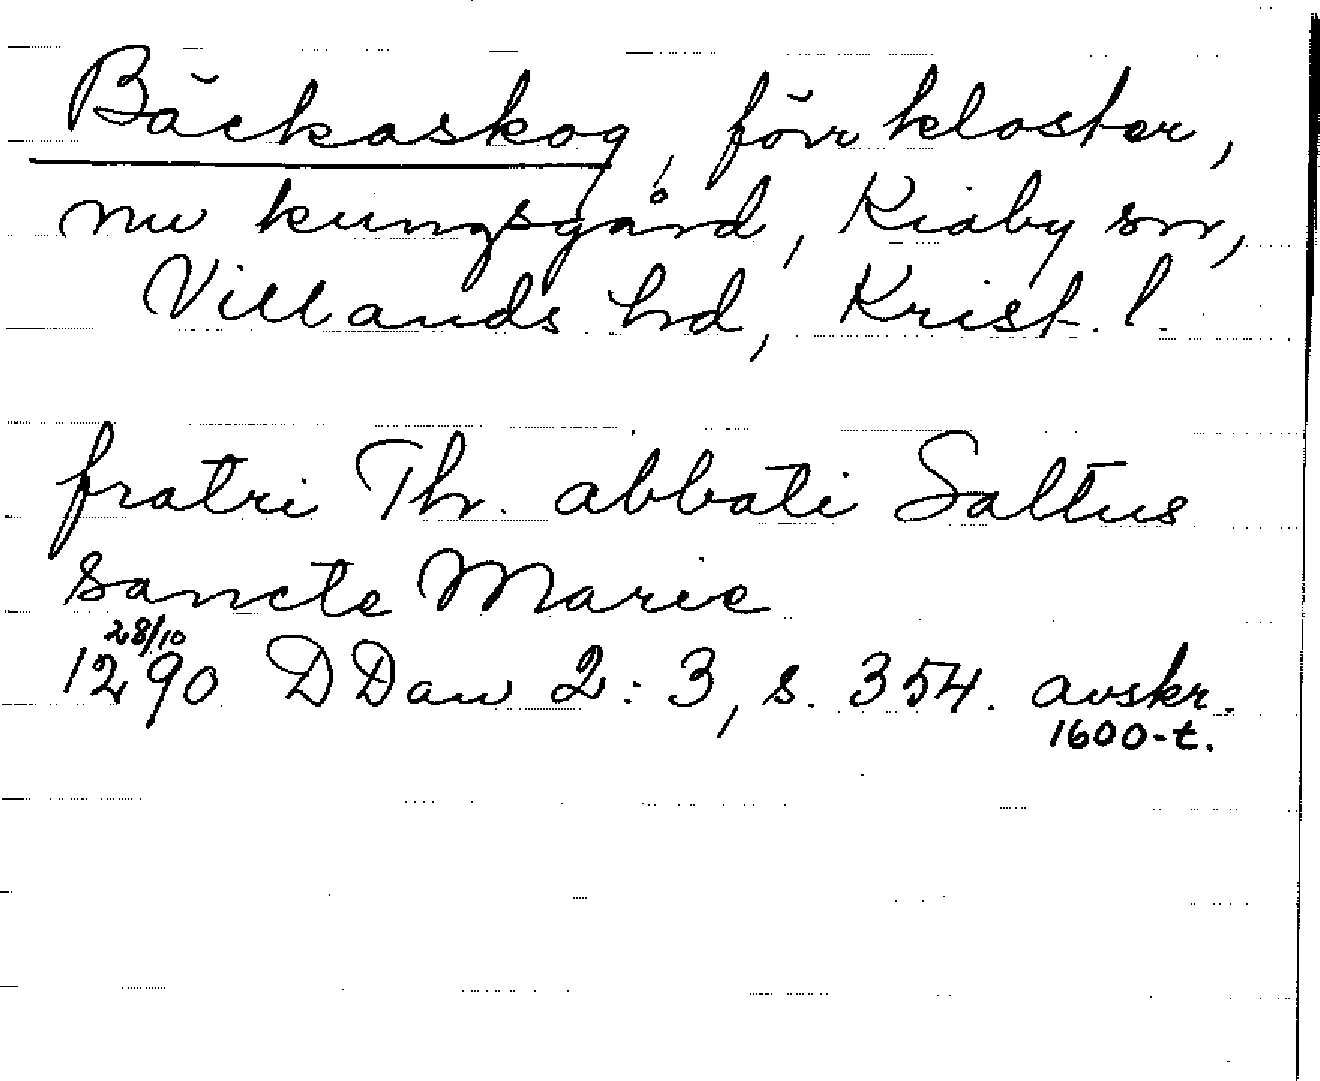 Bäckaskog, förr kloster,
nu kungsgård, Kiaby sn,
Villands hd, Krist. l.
fratri Th. abbati Saltus
sancte Marie
28/10
1290 DDan 2:3, s. 354. avskr.
1600-t.